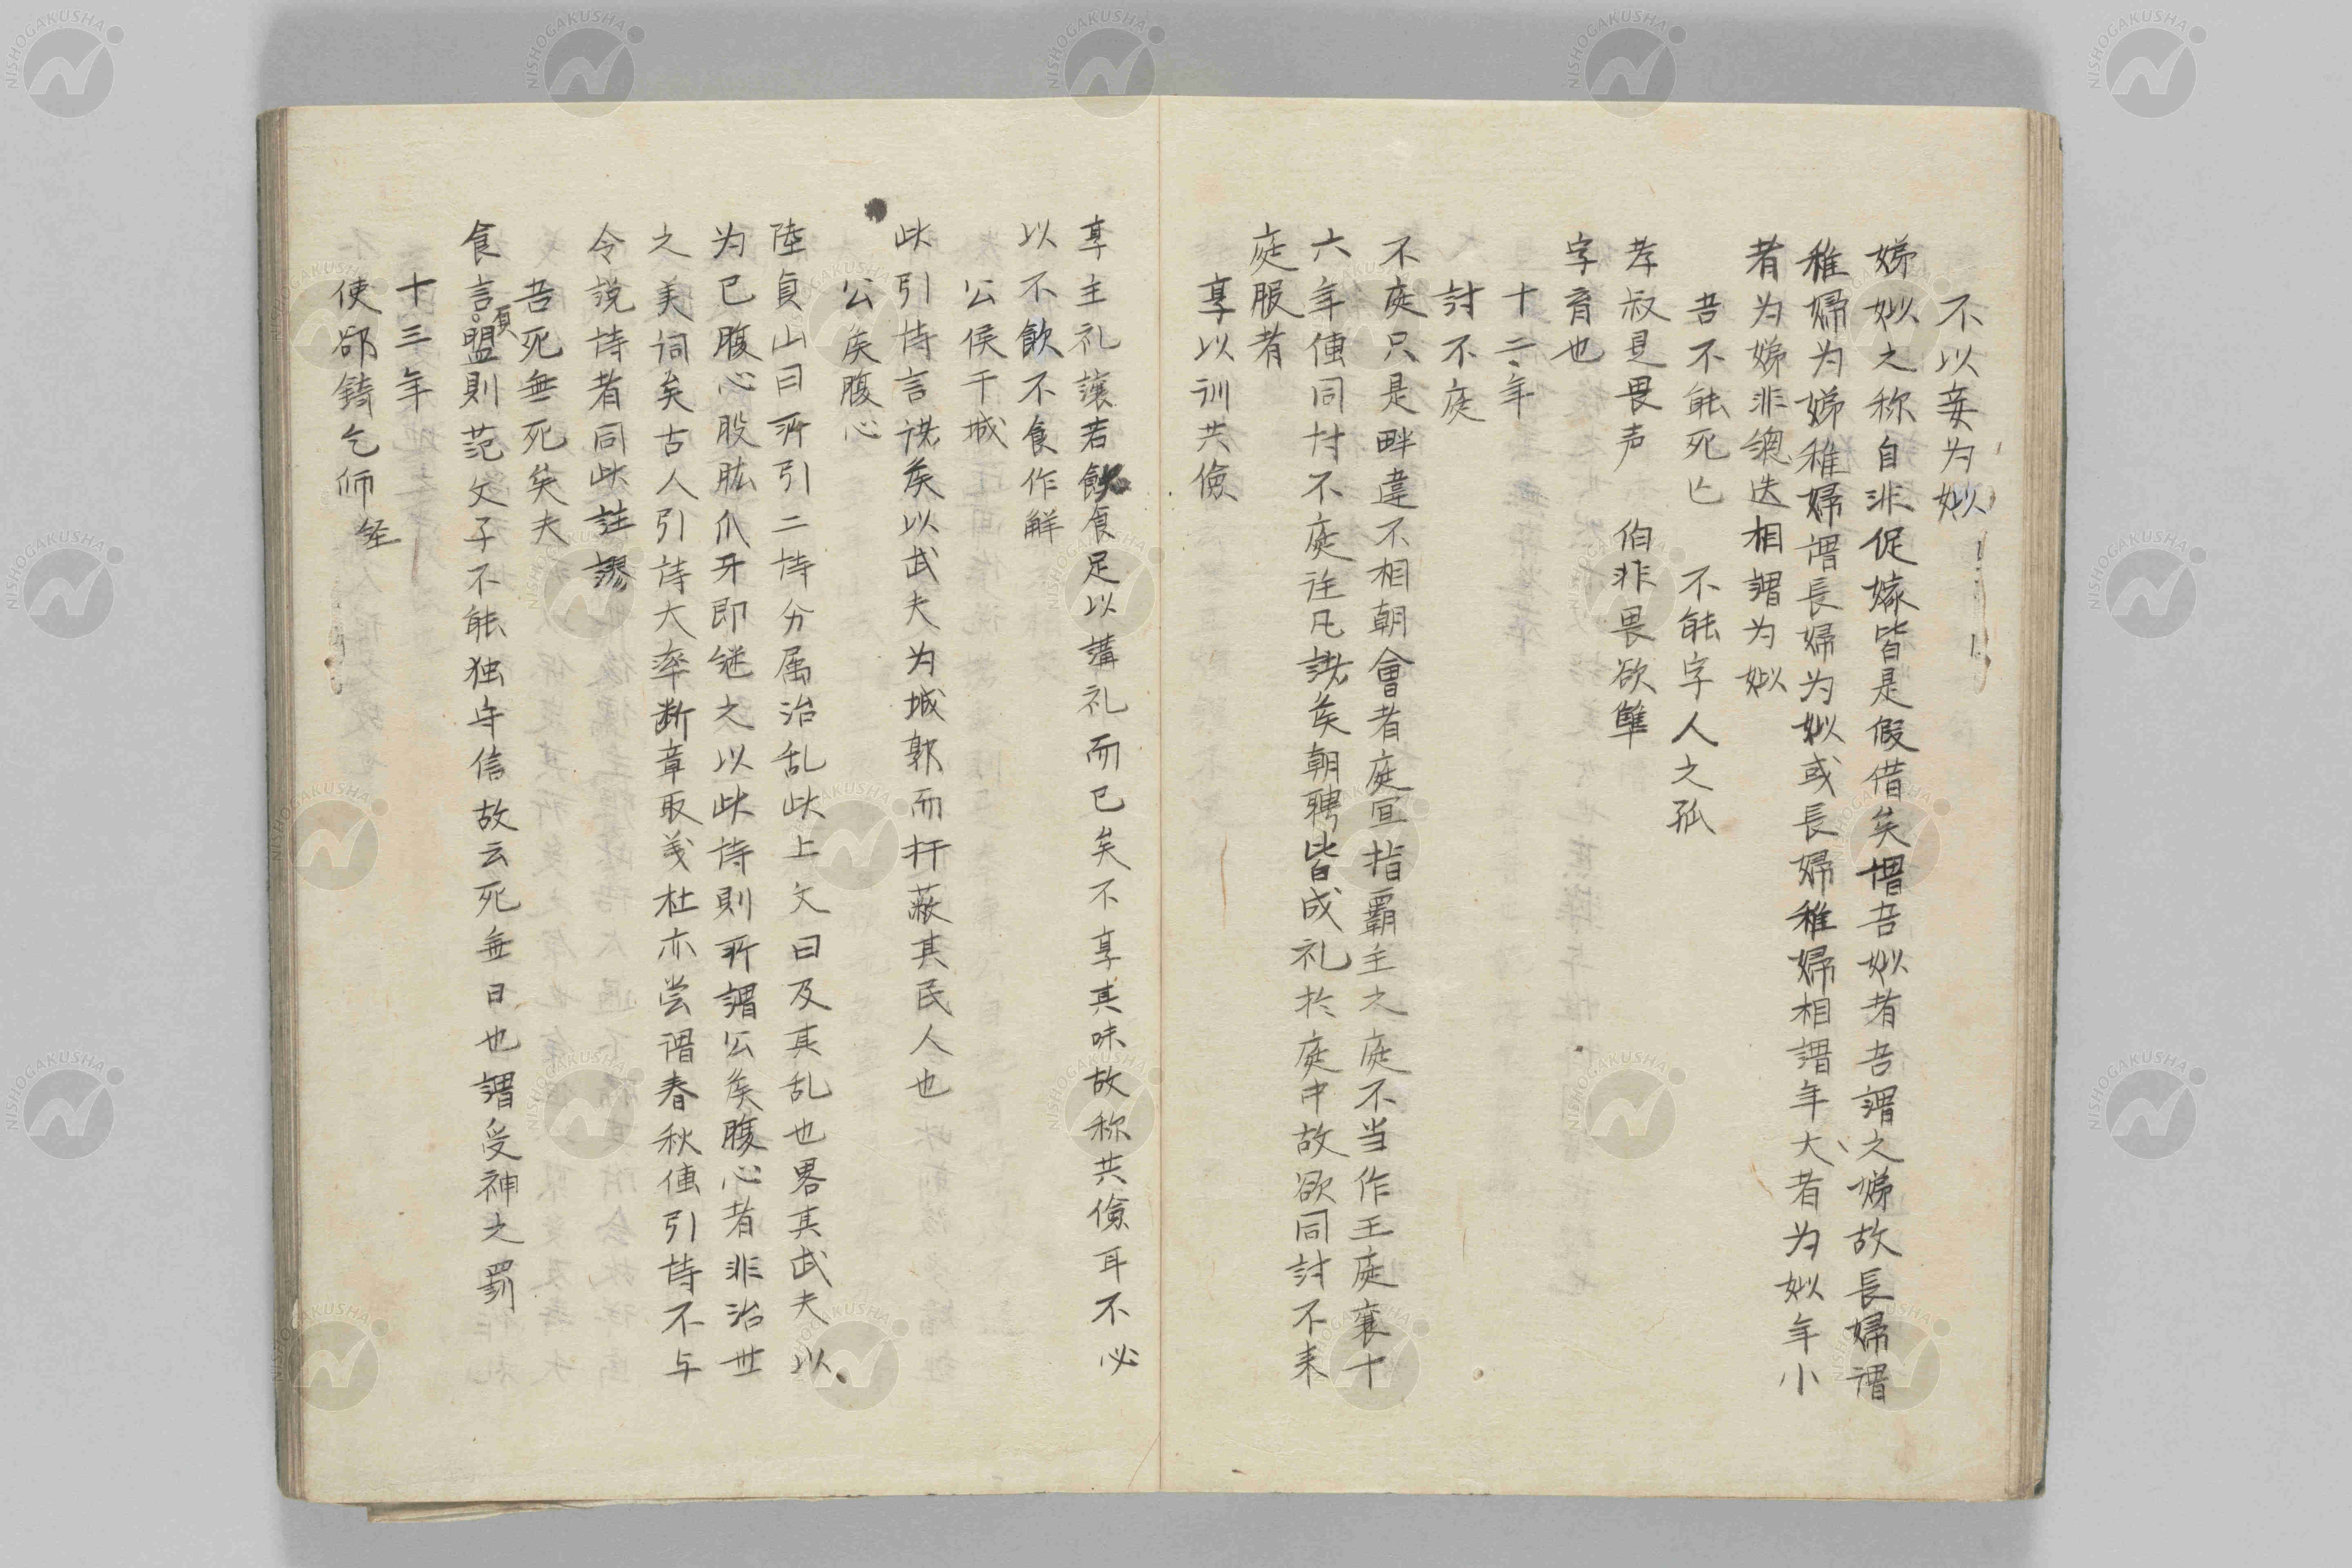 不以妾为姒
娣姒之称自非促嫁皆是假借矣謂吾姒者吾謂之娣故長婦謂
稚婦为娣稚婦謂長婦为姒或長婦稚婦相謂年大者为姒年小
者为娣非總迭相謂为姒
吾不能死亡　不能字人之孤
孝叔是畏声　伯非畏欲隼
字育也
十二年
討不庭
不庭只是畔違不相朝會者庭宣指霸主之庭不当作王庭襄十
六年傳同討不庭注凡諸矦朝聘皆成礼於庭中故欲同討不来
庭服者
享以訓共儉
享主礼讓若飲食足以講礼而已矣不享其味故称共儉耳不必
以不飲不食作解
公侯干城
此引诗言諸矦以武夫为城郭而扞蔽其民人也
公矦腹心
陸貞山曰所引二诗分属治乱此上文曰及其乱也畧其武夫以
为己腹心股肱爪牙即継之以此诗則所謂公矦腹心者非治世
之美词矣古人引诗大率断章取義杜亦尝謂春秋傳引诗不与
今説诗者同此註謬
吾死無死矣夫
食言須盟則范文子不能独守信故云死無日也謂受神之罰
十三年
使郤錡乞师経
NISHOGAKUSHA